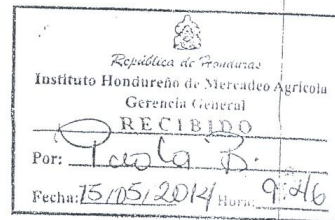 República de Honduras
Instituto Hondureño de Mercadeo Agrícola
Gerencia General
RECIBIDO
Por: Paola B.
Fecha: 15/05/2014 Hora: 9:46